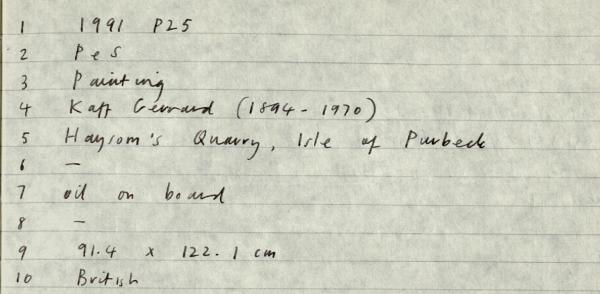 1 1991 P25
2 PeS
3 Painting
4 Kaff Gerrard (1894-1970)
5 Haysom's Quarry, Isle of Purbeck
6 -
7 oil on board
8 -
9 91.4 x 122.1 cm
10 British